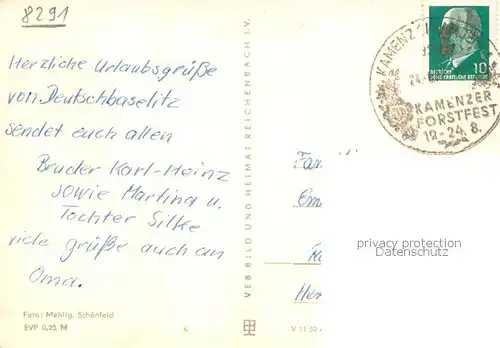 8291
Herzliche Urlaubsgrüße
von Deutschbaselitz
sendet euch allen
Bruder Karl-Heinz
sowie Martina u.
Tochter Silke
viele grüße auch an
Oma.
Foto: Mehlig, Schönfeld
EVP 0,25 M
VEB BILD UND HEIMAT REICHENBACH I. V.
V 11 50
KAMENZ
KAMENZER
FORSTFEST
12.-24. 8.
DEUTSCHE
DEMOKRATISCHE REPUBLIK
10
privacy protection
Datenschutz